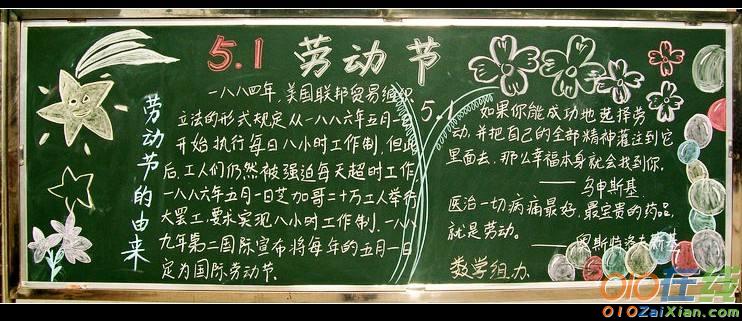 5.1 劳动节
劳动节的由来
一八八四年,美国联邦贸易组织
立法的形式规定从一八八六年五月一
开始执行每日八小时工作制.但此
后,工人们仍然被强迫每天超时工作
一八八六年五月一日芝加哥二十万工人举行
大罢工,要求实现八小时工作制.一八八
九年第二国际宣布将每年的五月一日
定为国际劳动节.
5.1
如果你能成功地选择劳
动,并把自己的全部精神灌注到它
里面去,那么幸福本身就会找到你.
——乌申斯基
医治一切病痛最好,最宝贵的药品,
就是劳动。
——奥斯特洛夫斯基
数学组办
010在线
010ZaiXian.com